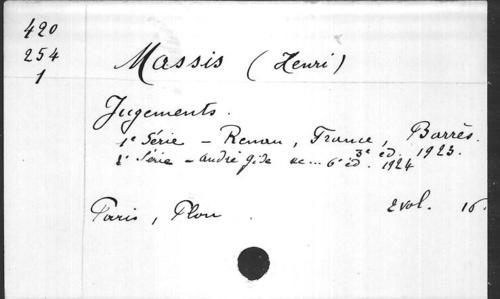 420
254
1
Massis (Henri)
Jugements.
1e Série – Renan, France, Barrès.
3e éd. 1923.
2e Série – André Gide &c... 6e éd. 1924
Paris, Plon
2 vol. 16.